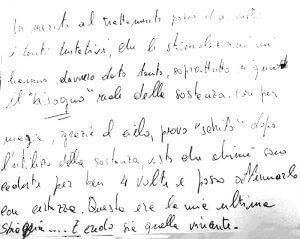 In merito al trattamento posso dire visti
i tanti tentativi, che le stimolazioni mi
hanno davvero dato tanto, soprattutto a
il "bisogno" reale della sostanza. Con per
magia, grazie al cielo, provo "schifo" dopo
l'utilizzo della sostanza, visto che ahimè sono
caduto per ben 4 volte e posso affermarlo
con certezza. Questa era la mia ultima
spiaggia.... E credo sia quella vincente.